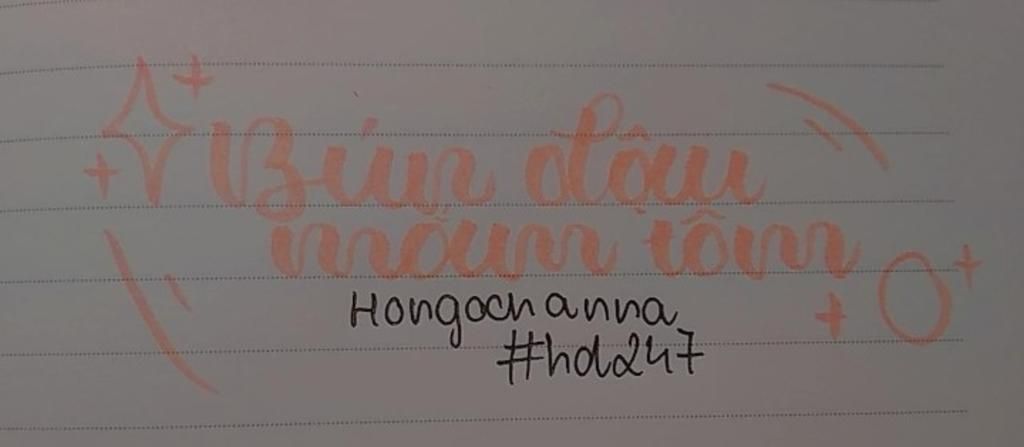 Bún đậu
mắm tôm
Hongochanna
#hdz247